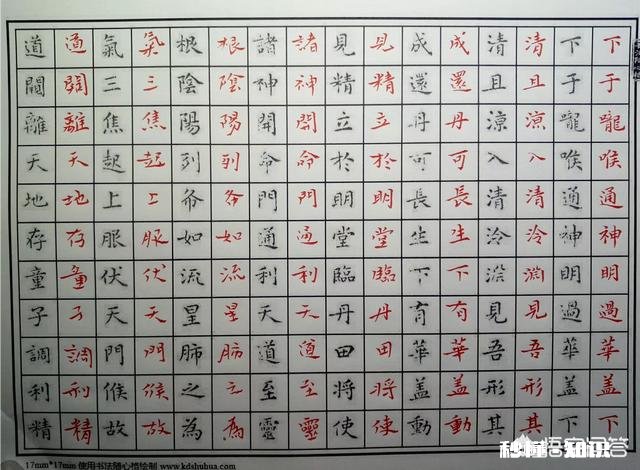 下于嚨喉通神明過華蓋下
下于嚨喉通神明過華蓋下
清且涼入清泠淵見吾形其
清且涼入清泠淵見吾形其
成還丹可長生下有華蓋動
成還丹可長生下有華蓋動
見精立於明堂臨丹田將使
見精立於明堂臨丹田將使
諸神開命門通利天道至靈
諸神開命門通利天道至靈
根陰陽列布如流星肺之為
根陰陽列布如流星肺之為
氣三焦起上服伏天門候故
氣三焦起上服伏天門候故
道闚離天地存童子調利精
道闚離天地存童子調利精
17mm*17mm 使用书法随心悟绘制 www.kdshuhua.com
悟空问答
秒懂知识